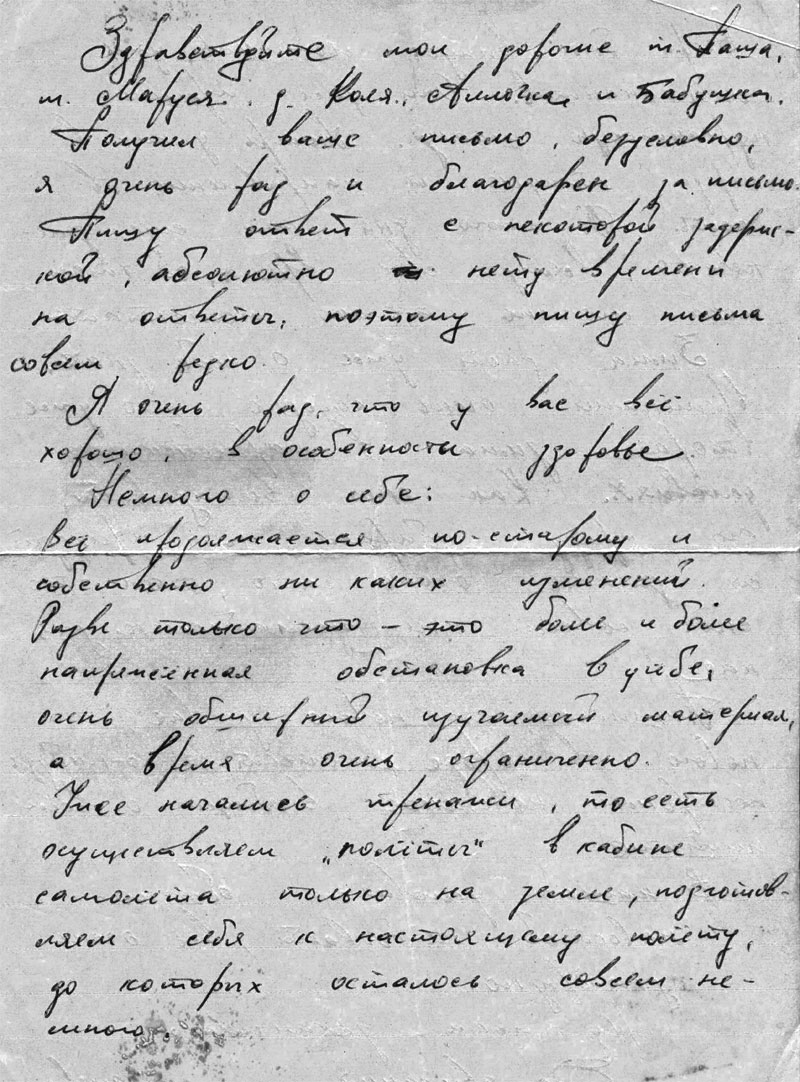 Здравствуйте мои дорогие т. Паша,
т. Маруся, д. Коля, Аллочка и Бабушка.
Получил ваше письмо, безусловно,
я очень рад и благодарен за письмо.
Пишу ответ с некоторой задерж-
кой, абсолютно нету времени
на ответы, поэтому пишу письма
совсем редко.
Я очень рад, что у вас всё
хорошо, в особенности здоровье.
Немного о себе:
всё продолжается по-старому и
собственно ни каких изменений.
Разве только что – это более и более
напряжённая обстановка в учебе,
очень обширный изучаемый материал,
а время очень ограниченно.
Уже начались тренажи, то есть
осуществляем „полёты" в кабине
самолёта только на земле, подготов-
ляем себя к настоящему полёту,
до которых осталось совсем не-
много.